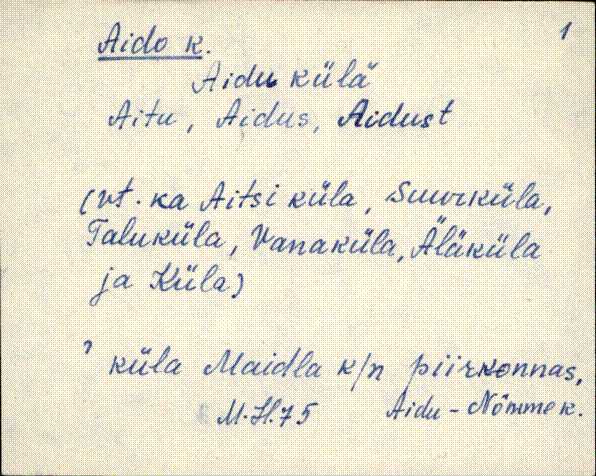 1
Aido k.
Aidu külä
Aitu, Aidus, Aidust
(vt. ka Aitsi küla, Suurküla,
Taluküla, Vanaküla, Äläküla
ja Küla)
? küla Maidla k/n piirkonnas,
M.H.75 Aidu-Nõmme k.